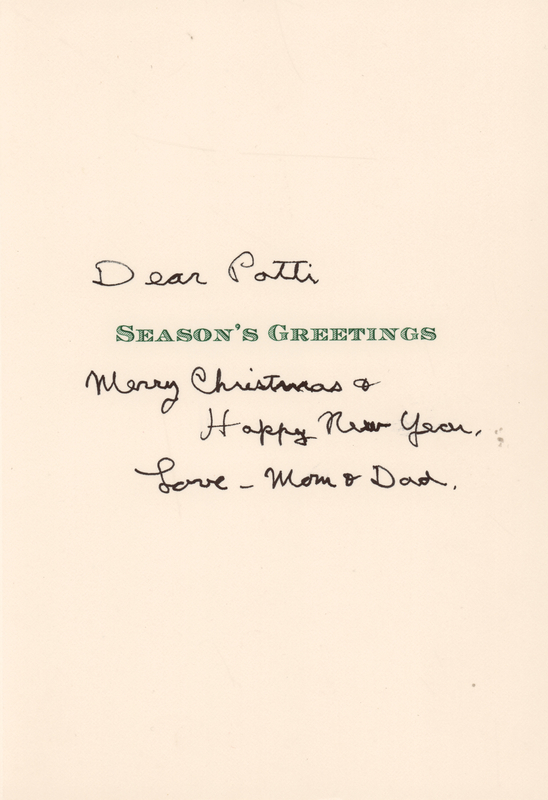 Dear Patti
SEASON'S GREETINGS
Merry Christmas &
Happy New Year.
Love - Mom & Dad.